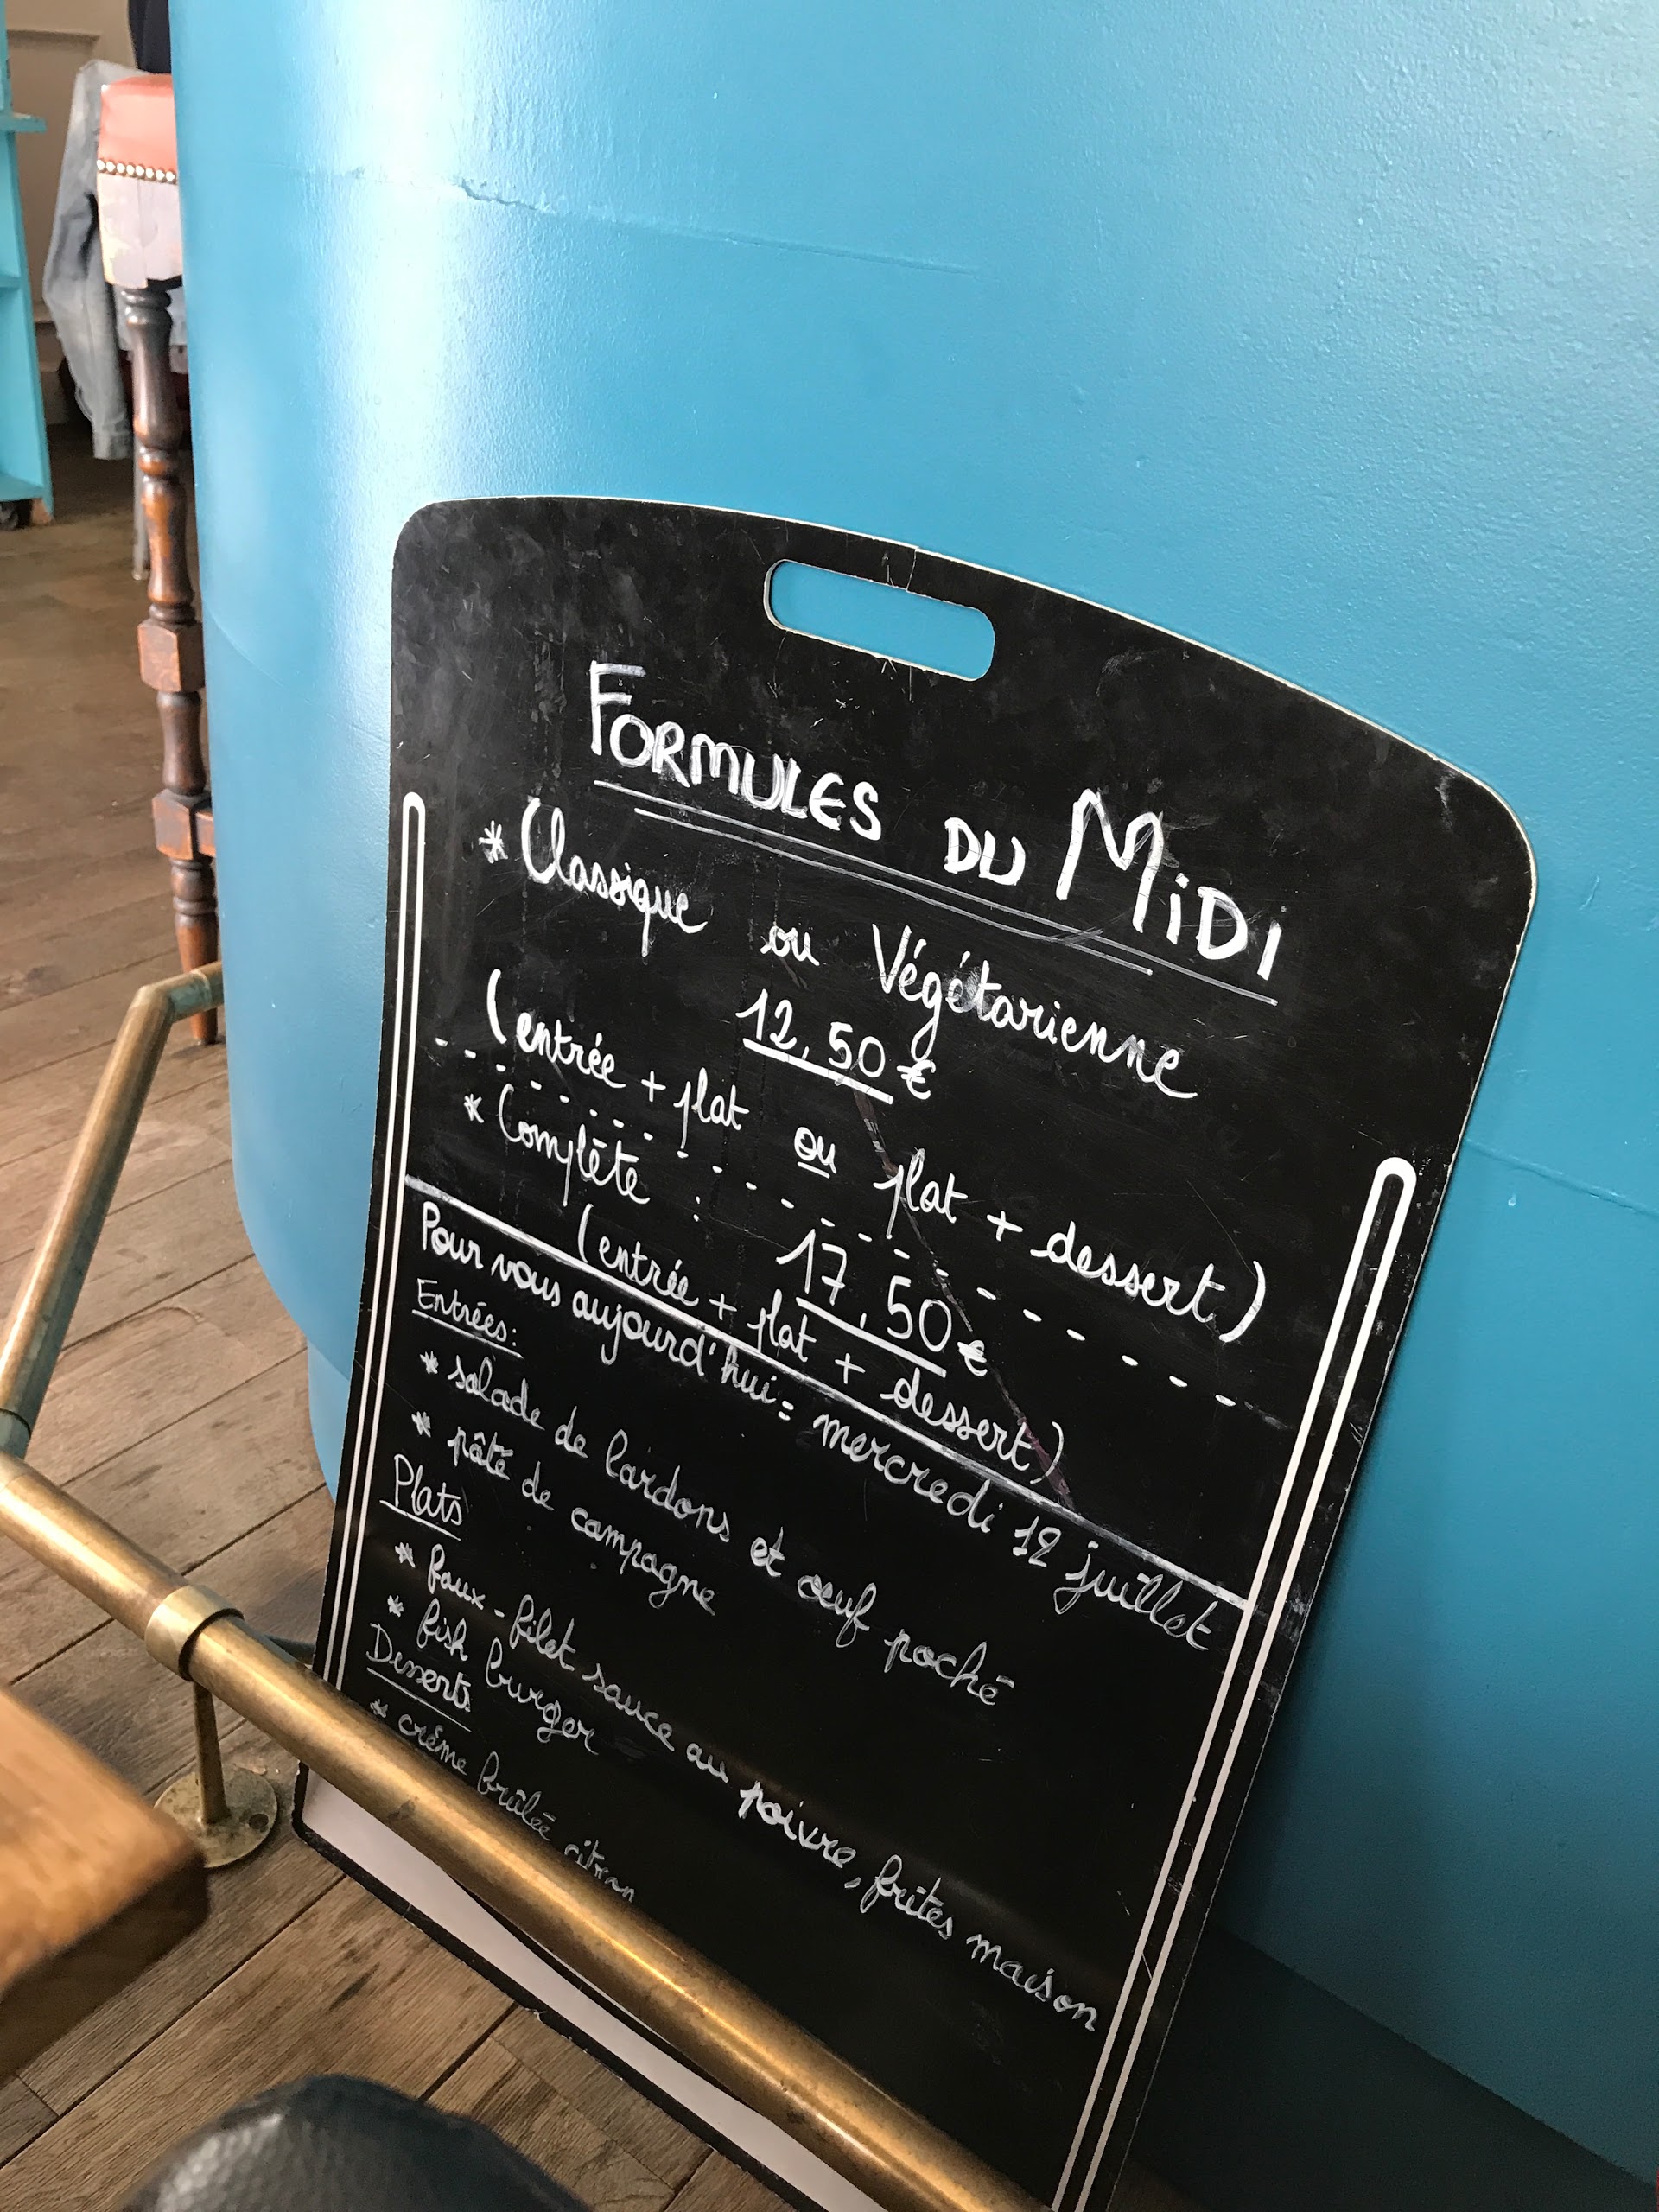 FORMULES DU MiDi
* Classique ou Végétarienne
12,50 €
(entrée + plat ou plat + dessert)
* Complète :
17,50 €
(entrée + plat + dessert)
Pour vous aujourd'hui = mercredi 12 juillet
Entrées:
* salade de lardons et œuf poché
* pâté de campagne
Plats
* faux-filet sauce au poivre, frites maison
* fish burger
Desserts
* crème brûlée citron